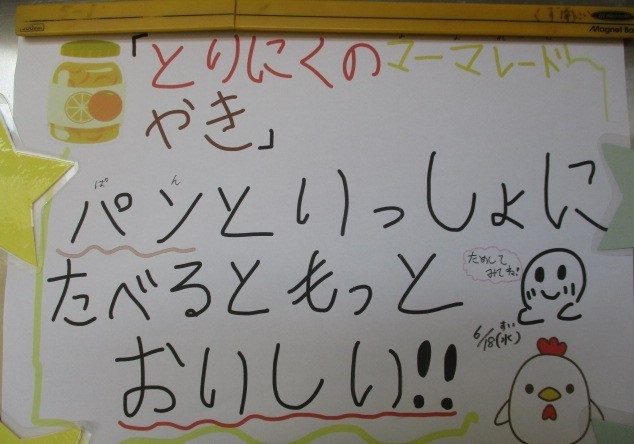 「とりにくのマーマレード
やき」
パンといっしょに
ぱ ん
たべるともっと
ためして
みてね!
おいしい!!
6/18(水)
すい